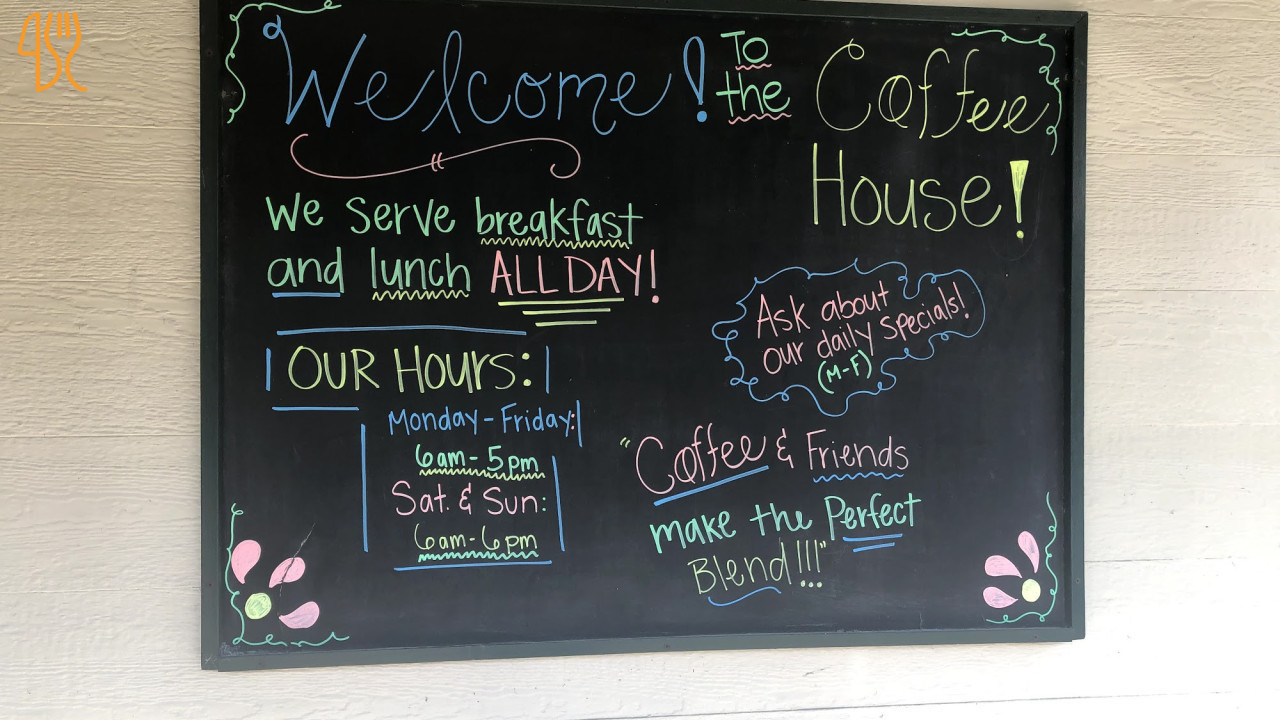 Welcome! To the Coffee House!
We serve breakfast
and lunch ALL DAY!
OUR HOURS:
Monday-Friday:
6am-5pm
Sat. & Sun:
6am-6pm
Ask about
our daily specials!
(M-F)
"Coffee & Friends
make the Perfect
Blend!!!"